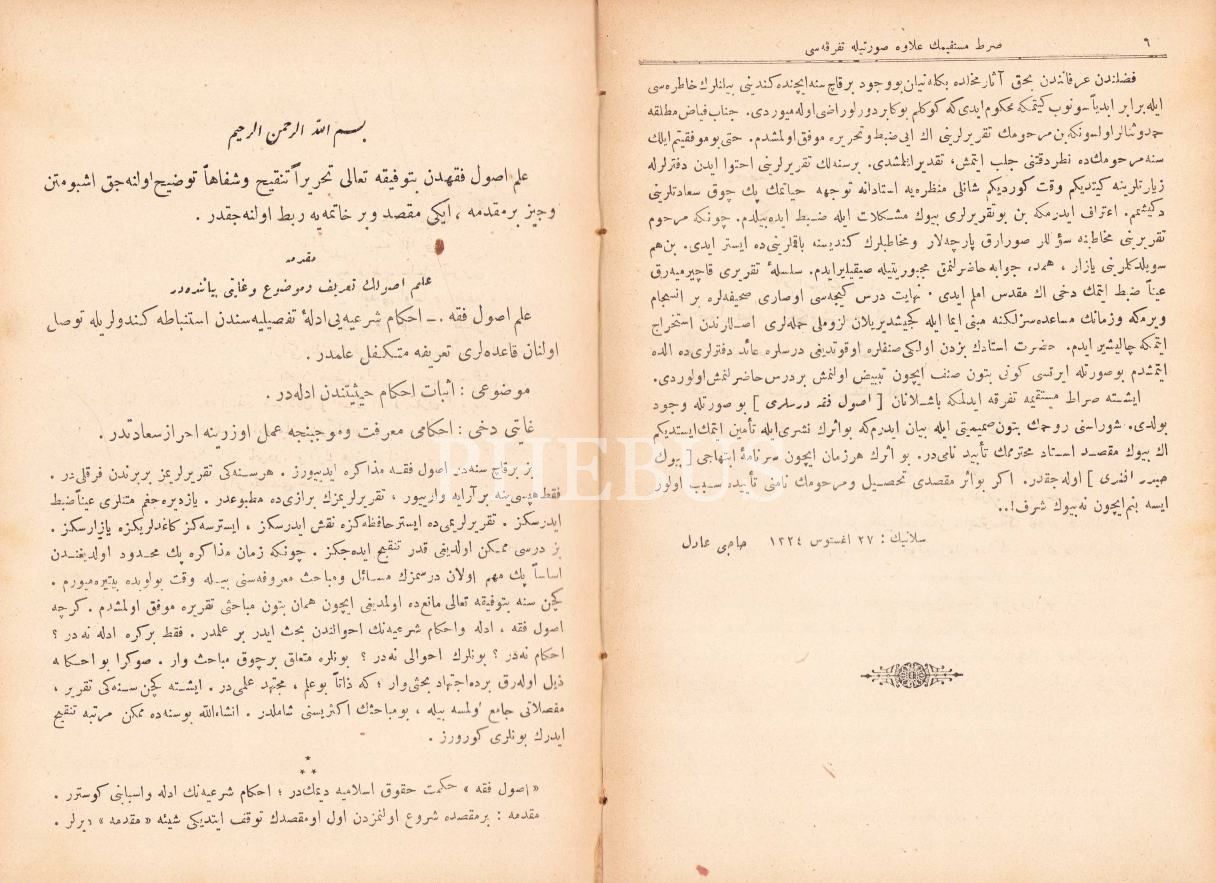 ٦
صراط مستقیمك علاوه صورتیله تفرقه‌سی
فضلندن عرفانندن بحق آثار مخلده بكله‌نیلن بو وجود برقاچ سنه ایچنده كندینی بیلنلرك خاطره‌سی
ایله برابر ابدیاً سونوب كیتمكه محكوم ایدی كه كوكلم بوكا بر دورلو راضی اوله‌میوردی. جناب فیاض مطلقه
حمدو ثنالر اولسونكه بن مرحومك تقریرلرینی اك ایی ضبط و تحریره موفق اولمشدم. حتی بو موفقیتم ایلك
سنه مرحومك‌ده نظر دقتنی جلب ایتمش، تقدیر ایلمشدی. بر سنه‌لك تقریرلرینی احتوا ایدن دفترلرله
زیارتلرینه كیتدیكم وقت كوردیكم شانلی منظره‌یه استادانه توجهه حیاتمك پك چوق سعادتلرینی
دكیشمم. اعتراف ایدرمكه بن بو تقریرلری بیوك مشكلات ایله ضبط ایده‌بیلدم. چونكه مرحوم
تقریرینی مخاطبنه سؤاللر صورارق پارچه‌لار و مخاطبلرك كندیسنه باقملرینی‌ده ایستر ایدی. بن هم
سویلدكلرینی یازار ، همده جوابه حاضرلنمق مجبوریتیله صیقیلیر ایدم. سلسلهٔ تقریری قاچیرمیه‌رق
عیناً ضبط ایتمك دخی اك مقدس املم ایدی. نهایت درس كیجه‌سی او صاری صحیفه‌لره بر انسجام
ویرمكه و زمانك مساعده‌سزلكنه مبنی ایما ایله كچیشدیریلان لزوملی جمله‌لری اصللرندن استخراج
ایتمكه چالیشیر ایدم. حضرت استادك بزدن اولكی صنفلره اوقوتدیغی درسلره عائد دفترلری‌ده الده
ایتمشدم بو صورتله ایرتسی كونی بتون صنف ایچون تبییض اولنمش بر درس حاضرلنمش اولوردی.
ایشته صراط مستقیمه تفرقه ایدلمكه باشلانان [ اصول فقه درسلری ] بو صورتله وجود
بولدی. شوراسنی روحمك بتون صمیمیتی ایله بیان ایدرم كه بو اثرك نشری ایله تأمین ایتمك ایستدیكم
اك بیوك مقصد استاد محترمك تأبید نامی‌در. بو اثرك هر زمان ایچون سرنامهٔ ابتهاجی [ بیوك
حیدر افندی ] اوله‌جقدر. اكر بو اثر مقصدی تحصیل و مرحومك نامنی تأبیده سبب اولور
ایسه بنم ایچون نه بیوك شرف!..
سلانیك : ٢٧ اغستوس ١٣٢٤ حاجی عادل
بسم الله الرحمن الرحیم
علم اصول فقهدن بتوفیقه تعالی تحریراً تنقیح و شفاهاً توضیح اولنه‌جق اشبو متن
وجیز بر مقدمه ، ایكی مقصد و بر خاتمه‌یه ربط اولنه‌جقدر .
مقدمه
علم اصولك تعریف و موضوع و غایتی بیاننده‌در
علم اصول فقه .ـ احكام شرعیه‌یی ادلهٔ تفصیلیه‌سندن استنباطه كندولریله توصل
اولنان قاعده‌لری تعریفه متكفل علمدر .
موضوعی : اثبات احكام حیثیتندن ادله‌در .
غایتی دخی : احكامی معرفت و موجبنجه عمل اوزرینه احراز سعادتدر .
بز برقاچ سنه‌در اصول فقه مذاكره ایدییورز . هر سنه‌كی تقریرلریمز بربرندن فرقلی‌در .
فقط هپسی ینه بر آرایه واریبور ، تقریرلریمزك برازی‌ده مطبوعدر . یازدیره‌جغم متنلری عیناً ضبط
ایدرسكز . تقریرلریمی‌ده ایستر حافظه‌كزه نقش ایدرسكز ، ایسترسه‌كز كاغدلریكزه یازارسكز .
بز درسی ممكن اولدیغی قدر تنقیح ایده‌جكز . چونكه زمان مذاكره پك محدود اولدیغندن
اساساً پك مهم اولان درسمزك مسائل و مباحث معروفه‌سنی بیله وقت بولوبده بیتیره‌میورم .
كچن سنه بتوفیقه تعالی مانع‌ده اولمدیغی ایچون همان بتون مباحثی تقریره موفق اولمشدم . كرچه
اصول فقه ، ادله و احكام شرعیه‌نك احوالندن بحث ایدر بر علمدر . فقط بركره ادله نه‌در ؟
احكام نه‌در ؟ بونلرك احوالی نه‌در ؟ بونلره متعلق برچوق مباحث وار . صوكرا بو احكامه
ذیل اوله‌رق برده اجتهاد بحثی وار ؛ كه ذاتاً بو علم ، مجتهد علمی‌در . ایشته كچن سنه‌كی تقریر ،
مفصلاتی جامع اولمسه بیله ، بو مباحثك اكثریسنی شاملدر . انشاءالله بو سنه‌ده ممكن مرتبه تنقیح
ایدرك بونلری كورورز .
*
* *
« اصول فقه » حكمت حقوق اسلامیه دیمك‌در ؛ احكام شرعیه‌نك ادله و اسبابنی كوسترر .
مقدمه : بر مقصده شروع اولنمزدن اول او مقصدك توقف ایتدیكی شیئه « مقدمه » دیرلر .
PHEBUS